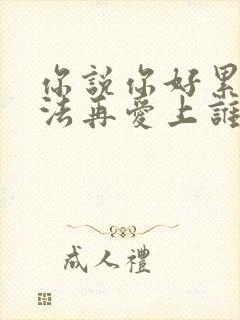 你說你好累
法再愛上誰
成人禮